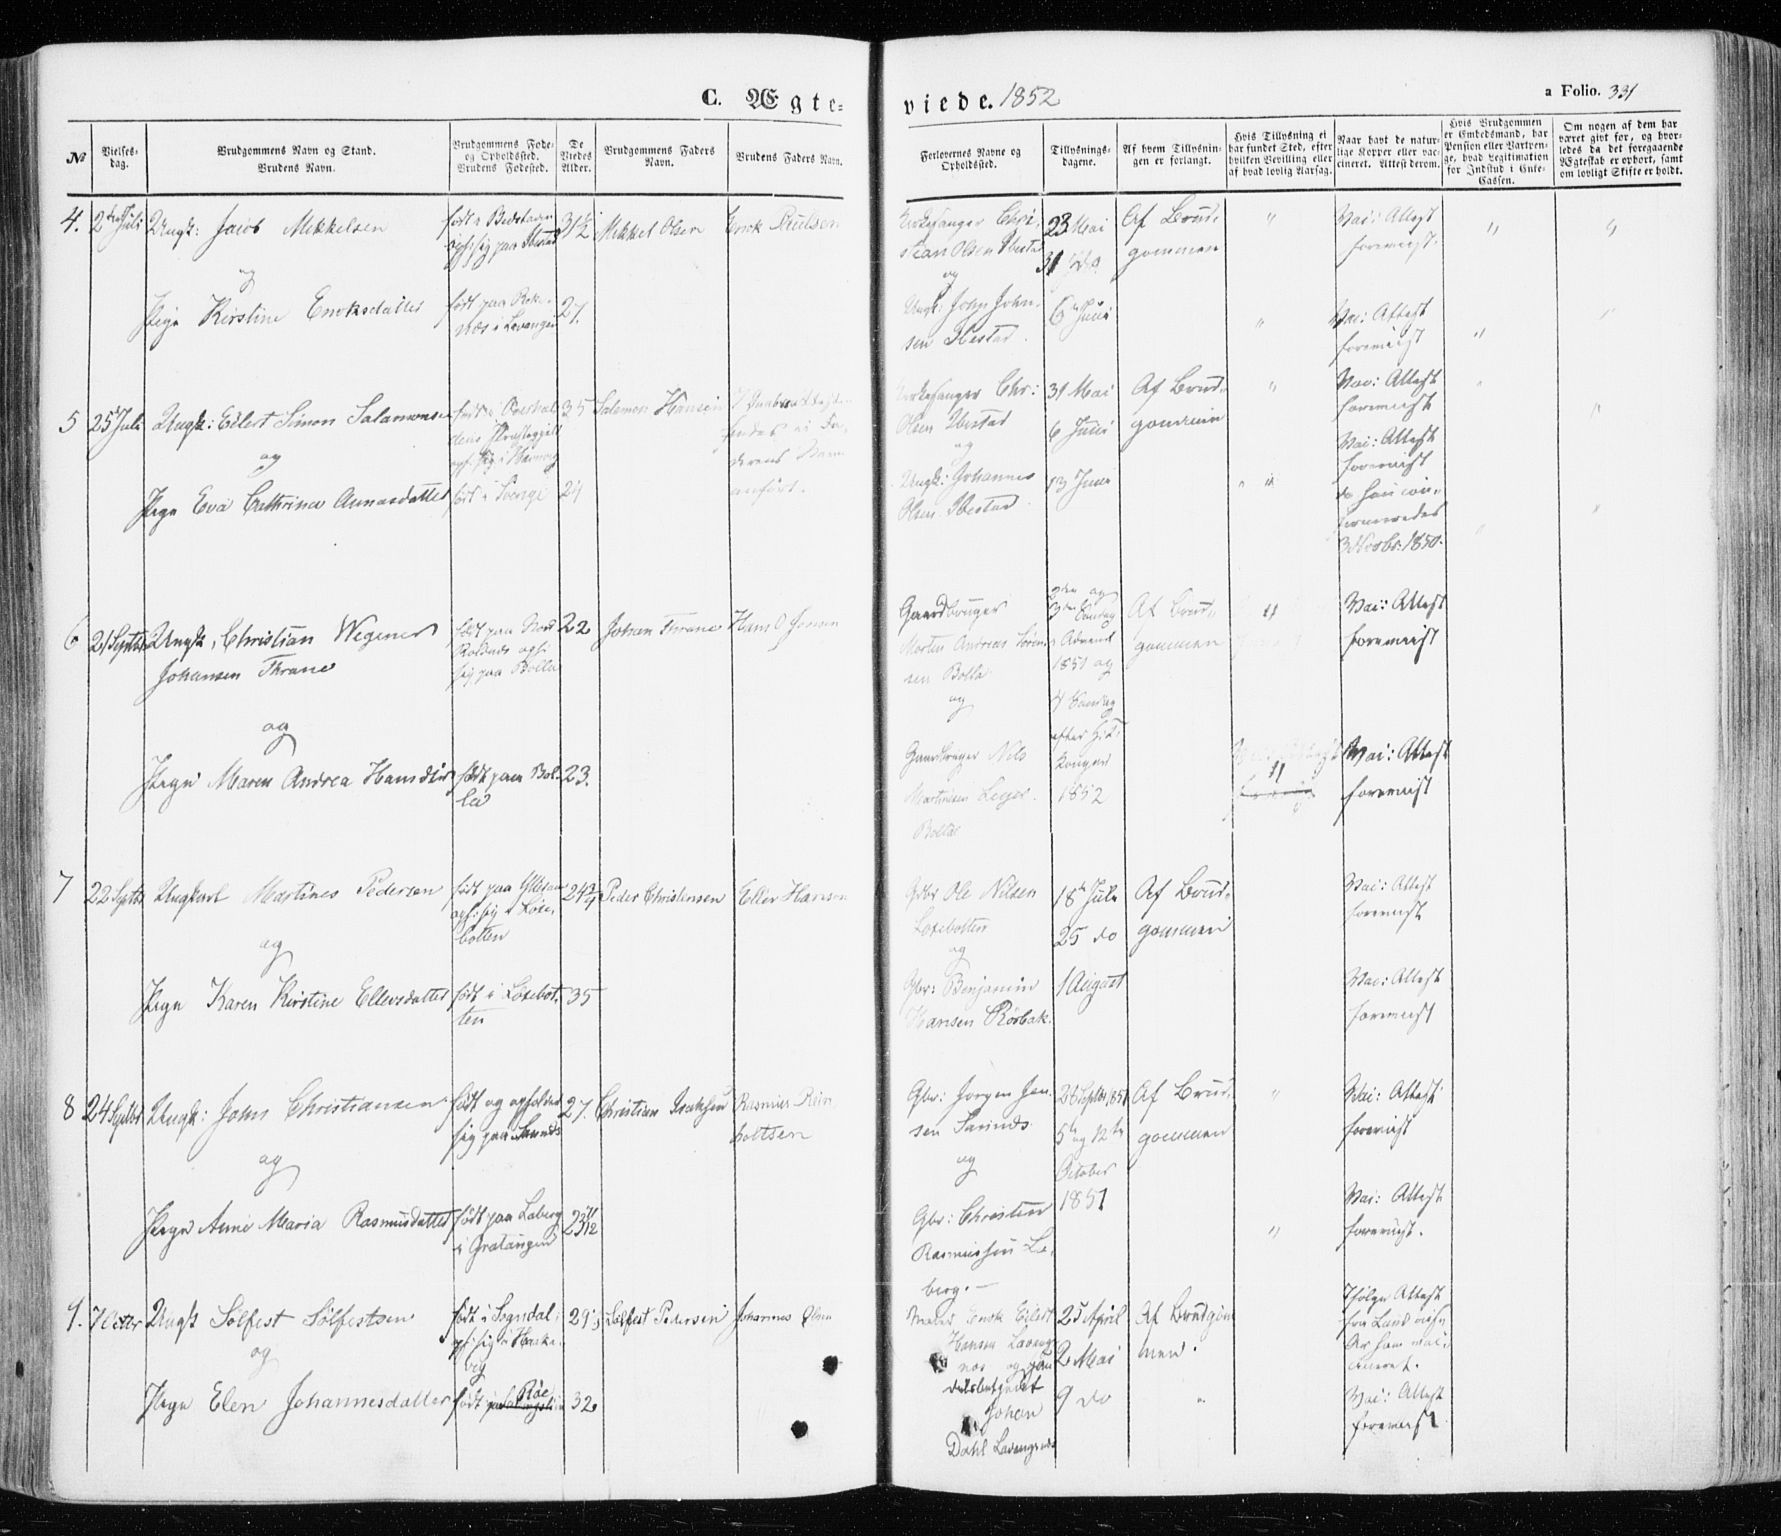 C. Ægte-
viede. 1852
a Folio. 331
No
Vielses-
dag.
Brudgommens Navn og Stand.
Brudens Navn.
Brudgommens Føde-
og Opholdssted.
Brudens Fødested.
De
Viedes
Alder.
Brudgommens Faders
Navn.
Brudens Faders Navn.
Forlovernes Navne og
Opholdssted.
Tillysnings-
dagene.
Af hvem Tillysnin-
gen er forlangt.
Hvis Tillysning ei
har fundet Sted, efter
hvilken Bevilling eller
af hvad lovlig Aarsag.
Naar havt de natur-
lige Kopper eller vac-
cineret. Attest derom.
Hvis Brudgommen
er Embedsmand, har
Pension eller Vartpen-
ge, hvad Legitimation
for Indskud i Enke-
Cassen.
Om nogen af dem har
været gift før, og hvor-
ledes da det foregaaende
Ægteskab er ophørt, samt
om lovligt Skifte er holdt.
4. 2den Juli Ungk: Jacob Mikkelsen
og
Pige Kirstine Enoksdatter
født i
oph: sig paa Ibestad
født paa
næs i Lavangen
31½
27.
Mikkel Olsen
Enok Poulsen
Kirkesanger Chri-
stian Olsen Ibestad
og
Ungk: John John-
sen Ibestad.
23 Mai
31 do
6te Juni
Af Brud-
gommen
"
"
Vac: Attest
foreviist.
Vac: Attest
foreviist
"
"
"
"
5 25 Juli Ungk: Eilert Simon Salamonsen
og
Pige Eva Cathrina Annasdatter
født i Overhal-
dens Præstegjeld
opf: sig i
født i
35
21
Salamon Hansen
I Daabsattesten
findes ei Fa-
derens Navn
anført.
Kirkesanger Chr:
Olsen Ibestad
og
Ungk: Johannes
Olsen Ibestad
31 Mai
6 Juni
13 Juni
Af Brud-
gommen
"
" "
Vac: Attest
foreviist
Vac: Attest
foreviist
da hun con-
firmeredes
1850.
"
"
6 21 Septbr Ungk. Christian Wegener
Johansen Thrane
og
Pige Maren Andrea Hansdtr
født paa
Rolnæs opf:
sig paa Bolla
født paa Bol-
la
22
23.
Johan Thrane
Hans O Jonsen
Gaardbruger
Morten Andreas Søren-
sen Bolla
og
Gaardbruger Nils
Martinsen
Bolla
2den og
3die Søndag
i Advent
1851 og
Søndag
efter H: 3
Konger
1852
Af Brud-
gommen
"
"
Vac: Attest
foreviist
Vac: Attest
foreviist
7 22 Septbr Ungkarl Martines Pedersen
og
Pige Karen Kirstine Ellevsdatter
født paa
opf: sig i Løxe-
botten
født i Løxebot-
ten
24¾
35
Peder Christensen
Ellev Hansen
Gdbr Ole Nilsen
Løxebotten
og
Gbr: Benjamin
Hansen Rørbak.
18de Juli
25 do
1 August
Af Brud-
gommen
Vac: Attest
foreviist
Vac: Attest
foreviist
8 24 Septbr Ungk: Johns Christiansen
og
Pige Anne Maria Rasmusdatter
født og opholder
sig paa
født paa Laberg
i Gratangen
27.
23 11/12
Christian Isaksen
Rasmus Rein
holtsen
Gbr: Jørgen Jen-
sen
og
Gbr: Christen
Rasmussen La-
berg. —
28 Septbr 1851
5te og 12te
October
1851
Af Brud-
gommen
"
"
Vac: Attest
foreviist
Vac: Attest
foreviist.
9. 7 Octbr Ungk Sølfest Sølfestsen
og
Pige Elen Johannesdatter
født i Sogndal
opf: sig i
født paa
29
32.
Sølfest Pedersen
Johannes Olsen
Enok Eilert
Hansen Laveng
næs og
Johan
Dahl Lavangsnæs
25 April
2 Mai
9 do
Af Brudgom
men.
"
Ifølge Attest
er han vac-
cineret.
Vac: Attest
foreviist